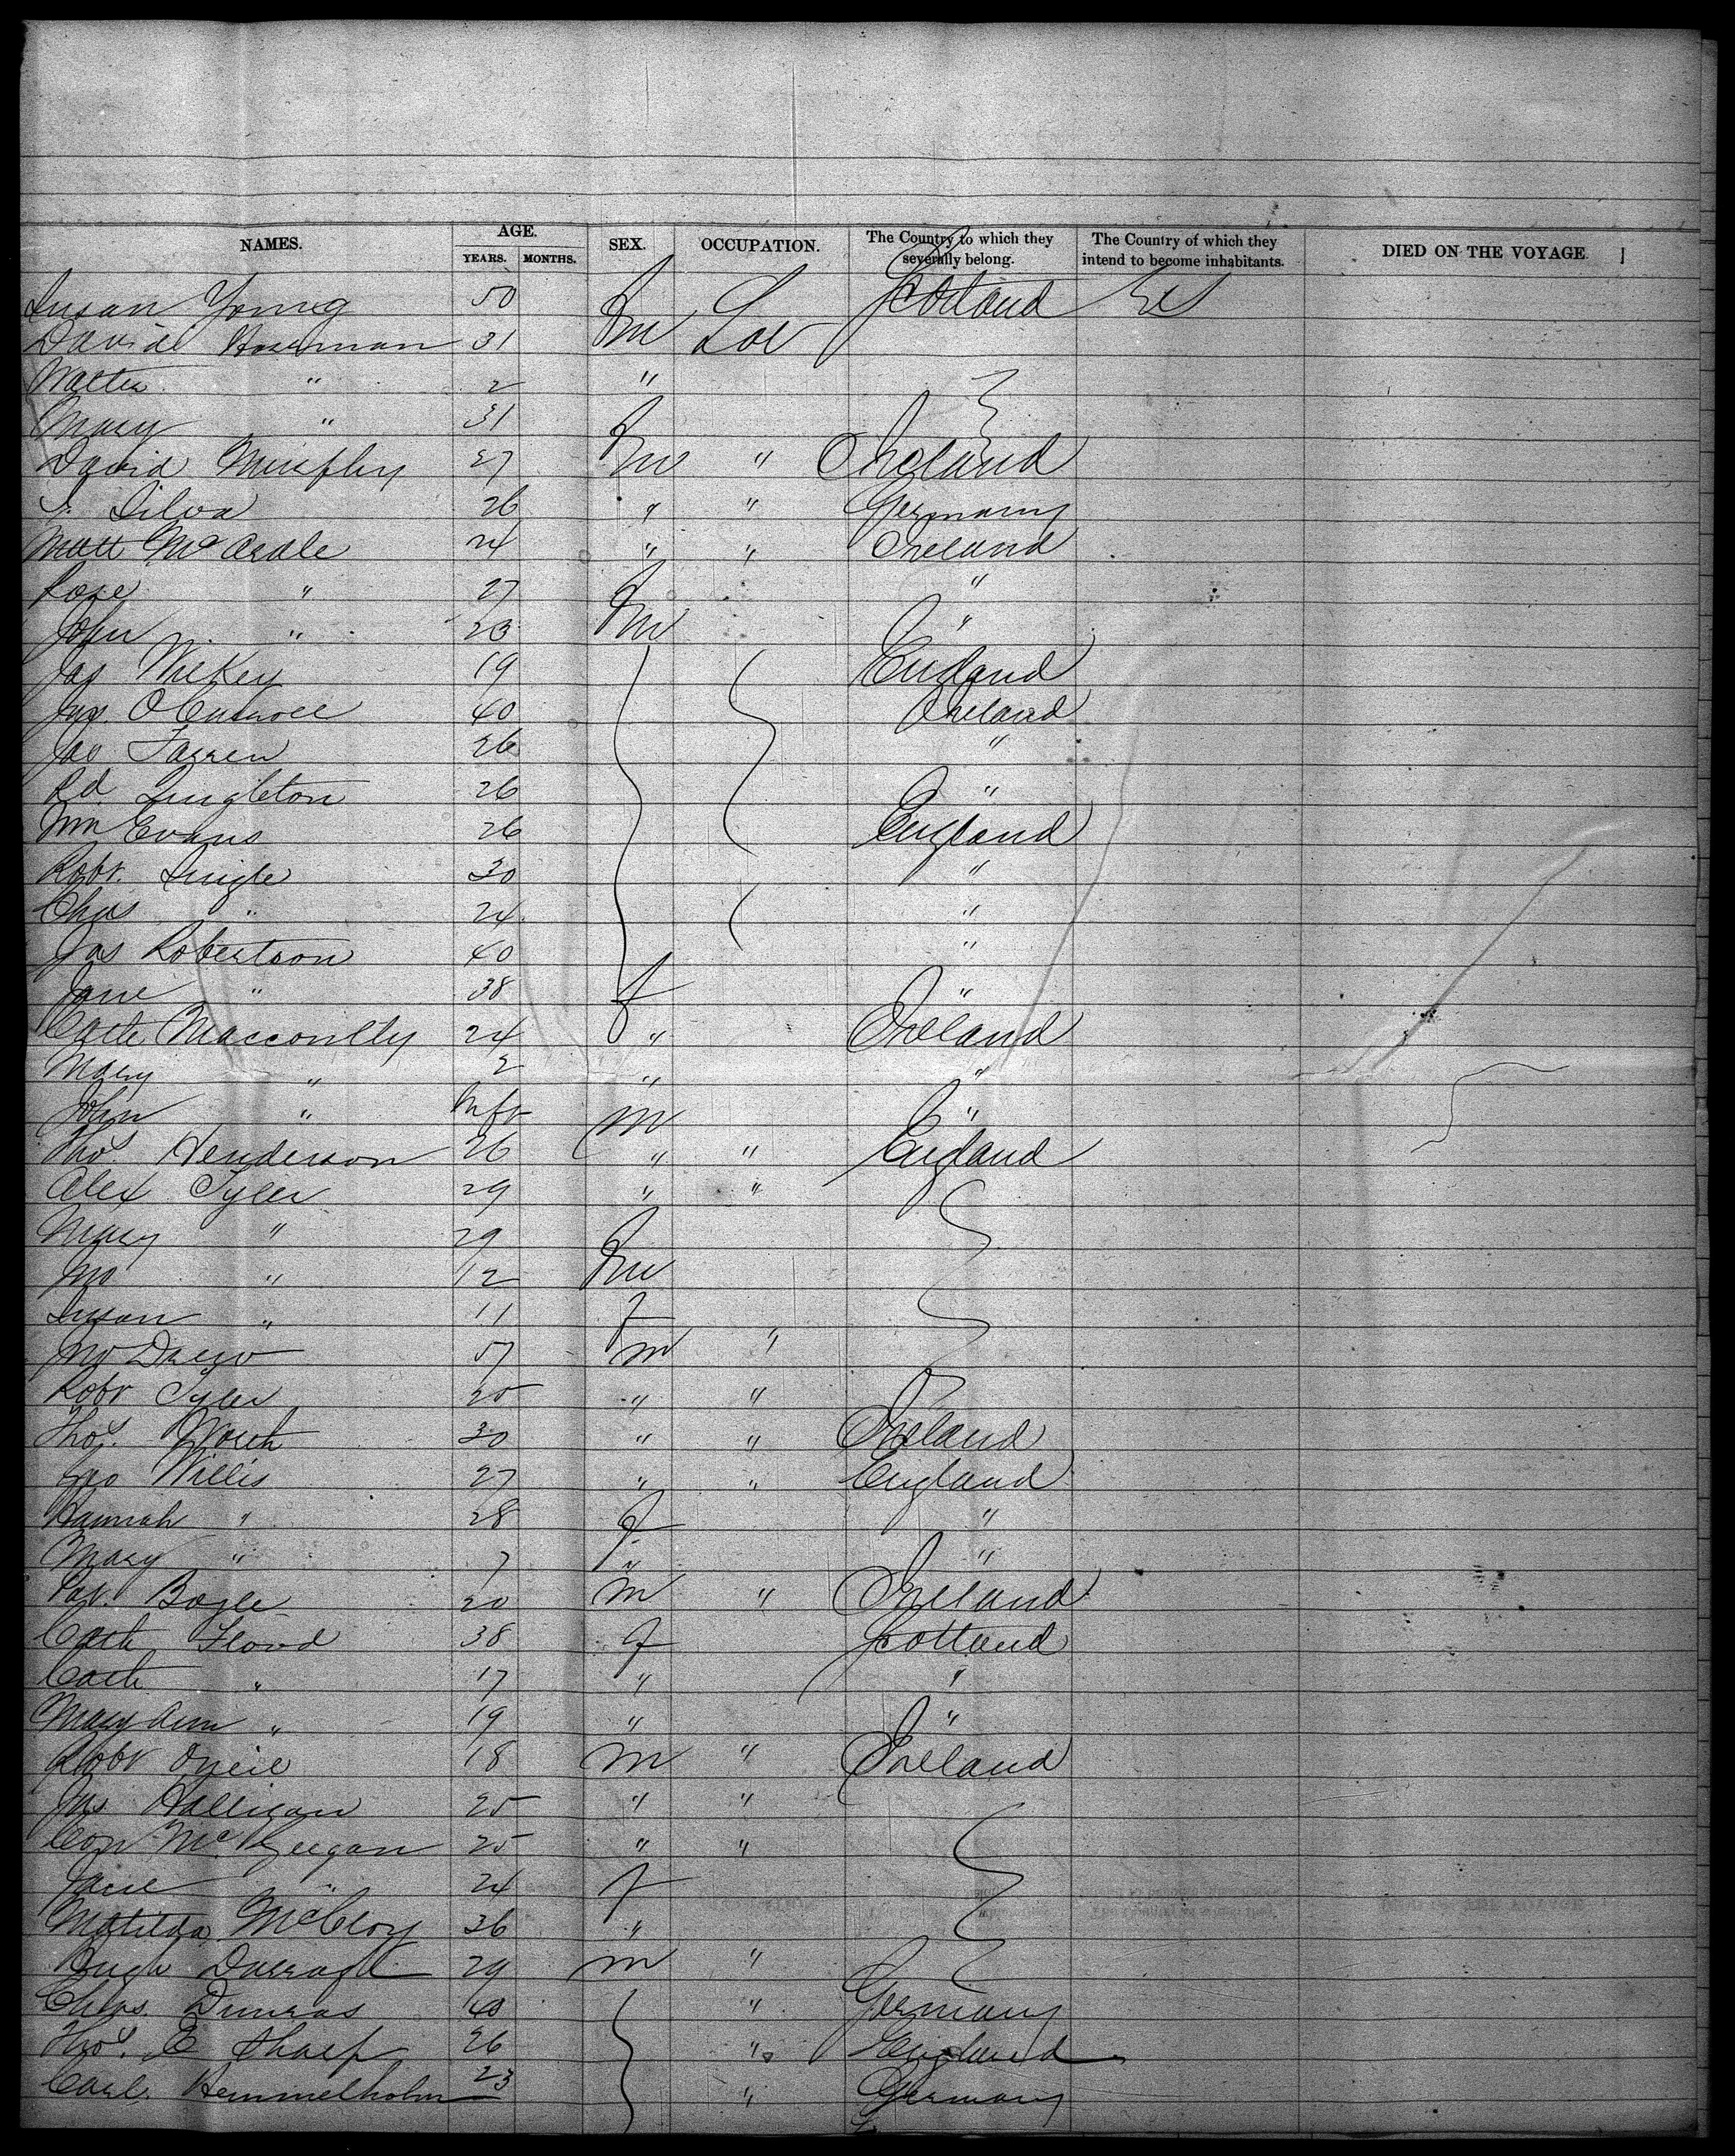 NAMES. AGE. YEARS. MONTHS. SEX. OCCUPATION. The Country to which they severally belong. The Country of which they intend to become inhabitants. DIED ON THE VOYAGE
Susan Young 50 f Scotland
David 31 m
Walter " 2 "
Mary " 31 f
David Murphy 27 m " Ireland
S. Silva 26 " " Germany
Matt McArdle 24 " " Ireland
Rose " 27 f "
John " 23 m "
Jas 19 England
Jas. 40 Ireland
Farren 26 "
Rd. Singleton 26 "
Wm Evans 26 England
Robt. Single 30 "
Chas " 24 "
Jas Robertson 40 "
Jane " 38 f "
Cath 24 " Ireland
Mary " 2 " "
John " Inft m "
Thos Henderson 26 " " England
Alex Tyler 29 " "
Mary " 29 f
Jno " 12 m
Susan " 11 f
Jno 57 m "
Robt Tyler 20 " "
Thos. 30 " " Ireland
Geo Willis 27 " " England
Hannah " 28 f "
Mary " 7 " "
Pat. Boyle 20 m " Ireland
Cath Flood 38 f Scotland
Cath " 17 " "
Mary Ann " 19 " "
Robt Oneil 18 m " Ireland
Jas Halligan 25 " "
Con McGeegan 25 " "
Jane " 24 f
Matilda McCloy 36 "
Hugh Darragh 29 m "
Chas. 40 " Germany
Thos. E Sharp 26 " England
Carl Hemmelholm 23 " Germany